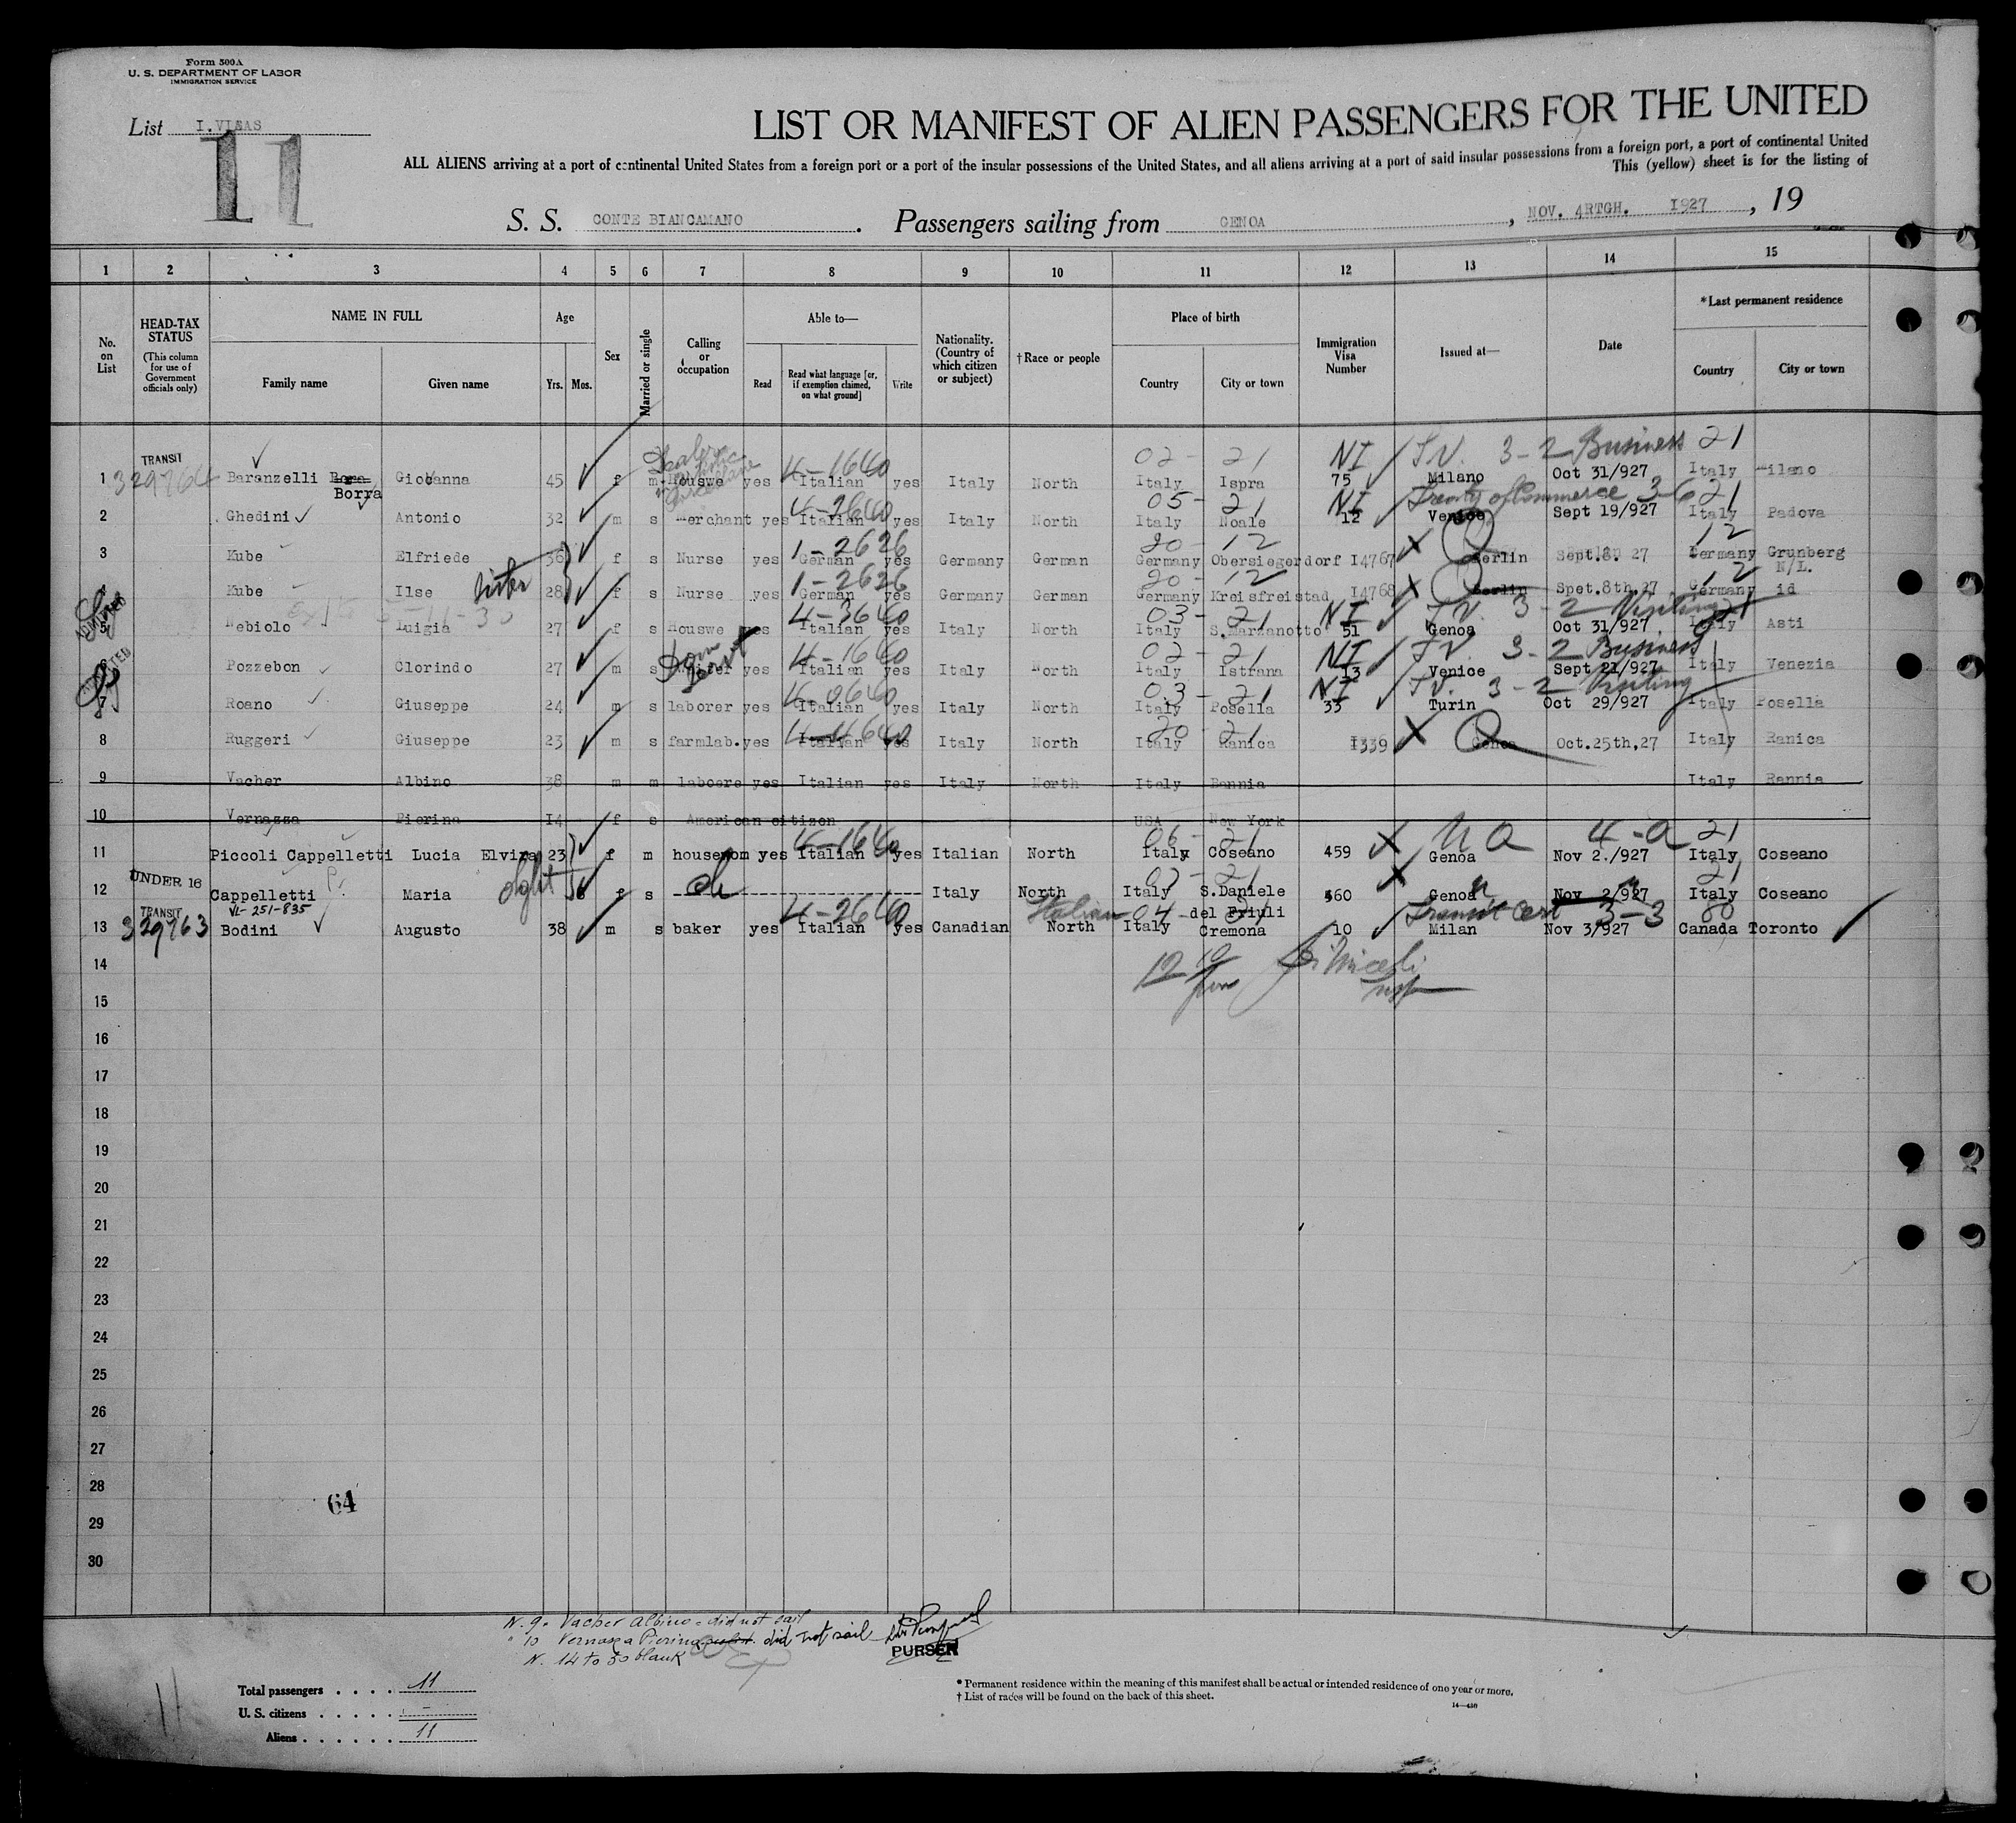 Form 500A
U. S. DEPARTMENT OF LABOR
IMMIGRATION SERVICE
List I.VISAS
11
LIST OR MANIFEST OF ALIEN PASSENGERS FOR THE UNITED
ALL ALIENS arriving at a port of continental United States from a foreign port or a port of the insular possessions of the United States, and all aliens arriving at a port of said insular possessions from a foreign port, a port of continental United
This (yellow) sheet is for the listing of
S. S. CONTE BIANCAMANO . Passengers sailing from GENOA , NOV. 4RTGH. I927 , 19
1 2 3 4 5 6 7 8 9 10 11 12 13 14 15
No. on List
HEAD-TAX STATUS (This column for use of Government officials only)
NAME IN FULL Family name Given name
Age Yrs. Mos.
Sex
Married or single
Calling or occupation
Able to— Read Read what language [or, if exemption claimed, on what ground] Write
Nationality. (Country of which citizen or subject)
†Race or people
Place of birth Country City or town
Immigration Visa Number
Issued at—
Date
*Last permanent residence Country City or town
02 - 21 NI T.V. 3-2 Business 21
TRANSIT
1 329764 Baranzelli Borra Giovanna 45 f m Houswe yes Italian yes Italy North Italy Ispra 75 Milano Oct 31/927 Italy Milano
05 - 21 NI Treaty of Commerce 3-6 21
2 Ghedini Antonio 32 m s merchant yes Italian yes Italy North Italy Noale 12 Venice Sept 19/927 Italy Padova
1-2626 20-12 12
3 Kube Elfriede 36 f s Nurse yes German yes Germany German Germany Obersiegerdorf I4767 Berlin Sept.8. 27 Germany Grunberg
sister 1-2626 20-12 12 N/L.
4 Kube Ilse 28 f s Nurse yes German yes Germany German Germany Kreisfreistad I4768 Berlin Spet.8th,27 Germany id
4-3640 03-21 NI T.V. 3-2 Visiting 21
5 Nebiolo Luigia 27 f s Houswe yes Italian yes Italy North Italy S.Marzanotto 51 Genoa Oct 31/927 Italy Asti
4-1640 02-21 NI T.V. 3-2 Business
6 Pozzebon Clorindo 27 m s yes Italian yes Italy North Italy Istrana I3 Venice Sept 21/927 Italy Venezia
4-0640 03-21 NI T.V. 3-2 Visiting
7 Roano Giuseppe 24 m s laborer yes Italian yes Italy North Italy Rosella 33 Turin Oct 29/927 Italy Rosella
4-4640 20-21
8 Ruggeri Giuseppe 23 m s farmlab. yes Italian yes Italy North Italy Ranica I339 Genoa Oct.25th,27 Italy Ranica
9 Vacher Albino 38 m m laboere yes Italian yes Italy North Italy Bannia Italy Bannia
10 Vernazza Pierina I4 f s American citizen USA New York
4-1640 06-21 NQ 4-a 21
11 Piccoli Cappelletti Lucia Elvira 23 f m housewom yes Italian yes Italian North Italy Coseano 459 Genoa Nov 2./927 Italy Coseano
UNDER 16 07-21 21
12 Cappelletti Maria 6 f s ch Italy North Italy S.Daniele 460 Genoa Nov 2/927 Italy Coseano
TRANSIT VL-251-835 4-2640 Italian 04 - del Friuli Transit Cert 3-3 80
13 329763 Bodini Augusto 38 m s baker yes Italian yes Canadian North Italy Cremona 10 Milan Nov 3/927 Canada Toronto
14
15
16
17
18
19
20
21
22
23
24
25
26
27
28
64
29
30
N. 9 - Vacher Albino - did not sail
" 10 Vernazza Pierina did not sail
N. 14 to 30 blank
PURSER
Total passengers . . . . 11
U. S. citizens . . . . . -
Aliens . . . . . . 11
* Permanent residence within the meaning of this manifest shall be actual or intended residence of one year or more.
† List of races will be found on the back of this sheet.